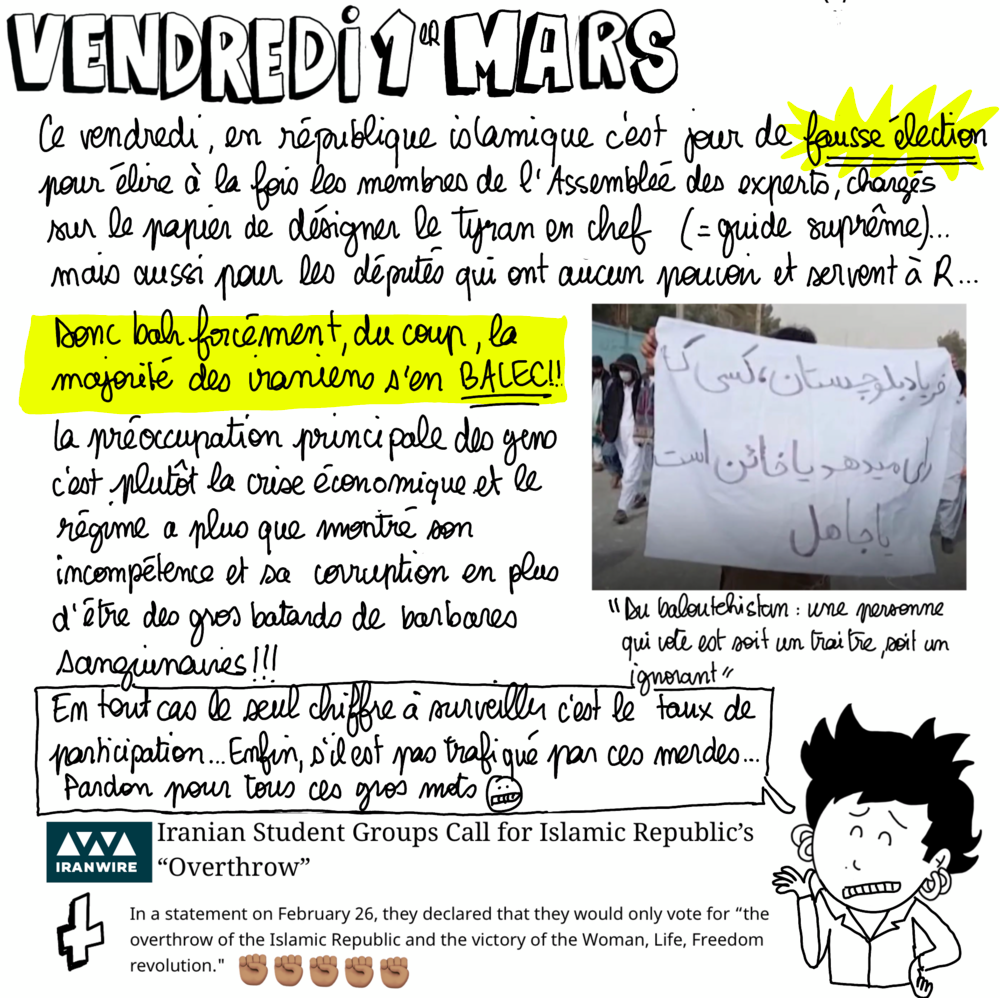 VENDREDI 1ER MARS
Ce vendredi, en république islamique c'est jour de fausse élection
pour élire à la fois les membres de l'Assemblée des experts, chargés
sur le papier de désigner le tyran en chef (= guide suprême)...
mais aussi pour les députés qui ont aucun pouvoir et servent à R...
Donc bah forcément, du coup, la
majorité des iraniens s'en BALEC!!
la préoccupation principale des gens
c'est plutôt la crise économique et le
régime a plus que montré son
incompétence et sa corruption en plus
d'être des gros batards de barbares
sanguinaires!!!
فریاد بلوچستان، کسی کا
رای میدهد یا خائن است
یا جاهل
"Du baloutchistan : une personne
qui vote est soit un traitre, soit un
ignorant"
En tout cas le seul chiffre à surveiller c'est le taux de
participation... Enfin, s'il est pas trafiqué par ces merdes...
Pardon pour tous ces gros mots
IRANWIRE
Iranian Student Groups Call for Islamic Republic's
“Overthrow”
In a statement on February 26, they declared that they would only vote for “the
overthrow of the Islamic Republic and the victory of the Woman, Life, Freedom
revolution."